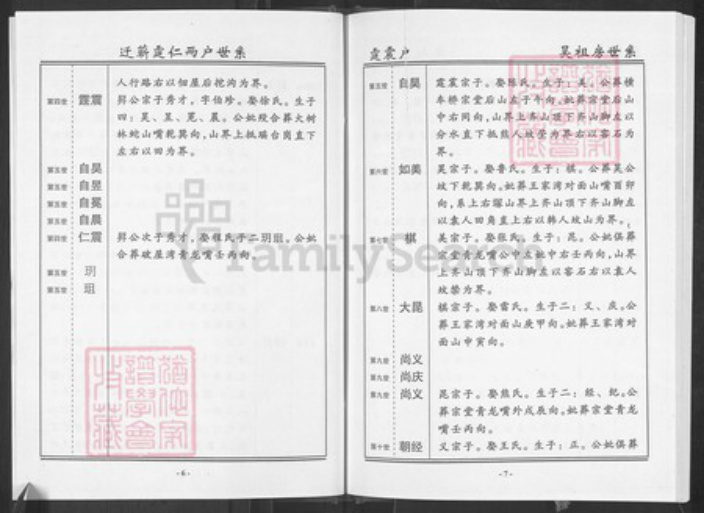 迁蕲霆仁两户世系
人行路右以佃屋后挖沟为界。
第四世 霆震 羿公宗子秀才,字伯珍。娶徐氏。生子
四:昊、昱、冕、晨。公妣殁合葬大树
林蛇山嘴乾巽向,山界上抵瑞台岗直下
左右以田为界。
第五世 自昊
第五世 自昱
第五世 自冕
第五世 自晨
第四世 仁震 羿公次子秀才,娶程氏子二玥珇。公妣
合葬破屋湾青龙嘴壬丙向。
第五世 玥
第五世 珇
-6-
霆震户 昊祖房世系
第五世 自昊 霆震宗子。娶陈氏。生子:美。公葬横
车桥宗堂后山左子午向。妣葬宗堂后山
中右同向,山界上齐山顶下齐山脚左以
分水直下抵熊人坟茔为界右以窖石为
界。
第六世 如美 昊宗子。娶鲁氏。生子:棋。公葬昊公
坟下乾巽向。妣葬王家湾对面山嘴酉卯
向,系上右塚山界上齐山顶下齐山脚左
以袁人田角直上右以韩人坟山为界。
第七世 棋 美宗子。娶张氏。生子:昆。公妣俱葬
宗堂青龙嘴公中左妣中右壬丙向,山界
上齐山顶下齐山脚左以窖石右以袁人
坟禁为界。
第八世 大昆 棋宗子。娶雷氏。生子二:义、庆。公
葬王家湾对面山庚甲向。妣葬王家湾对
面山申寅向。
第九世 尚义
第九世 尚庆
第九世 尚义 昆宗子。娶熊氏。生子二:经、纪。公
葬宗堂青龙嘴外戌辰向。妣葬宗堂青龙
嘴壬丙向。
第十世 朝经 义宗子。娶王氏。生子:正。公妣俱葬
-7-
FamilySearch